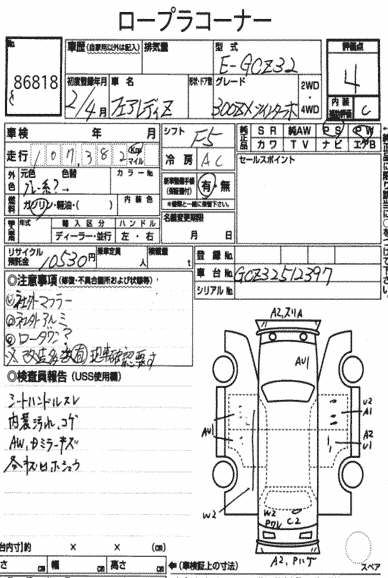 ロープラコーナー
No.
86818
車歴 (自家用以外は記入)
排気量
型式
E-GCZ32
評価点
4
初度登録年月
2/4月
車名
フェアレディZ
形状・ドア数
グレード
300ZX ツインターボ
2WD
4WD
内装
補助評価
C
車検 年 月
走行 107,382 Km マイル
シフト
F5
冷房
AC
純正品
SR 純AW PS PW
カワ TV ナビ エアB
外色
元色
色替
カラーNo.
燃料
ガソリン・軽油・( )
内装色
新車整備手帳
(保証書付)
有・無
セールスポイント
輸入区分
ハンドル
ディーラー・並行
左・右
名義変更期限
月 日
リサイクル
預託金
10530円
乗車定員
人
積載量
t
登録No.
車台No.
GCZ32512397
シリアルNo.
◎注意事項(修復・不具合箇所および状態等)
社外マフラー
社外アルミ
ロータワア
◎検査員報告(USS使用欄)
シートハンドルスレ
内装汚れ、コゲ
AW、カミラーキズ
各キズヒホシュウ
A2,スリA
AU1
AU1
U2
A1
A2
U1
W2
W2
PクU
C2
A2,Pハゲ
台内寸)約 × × (cm)
さ cm 幅 cm 高さ cm
(車検証上の寸法)
スペア